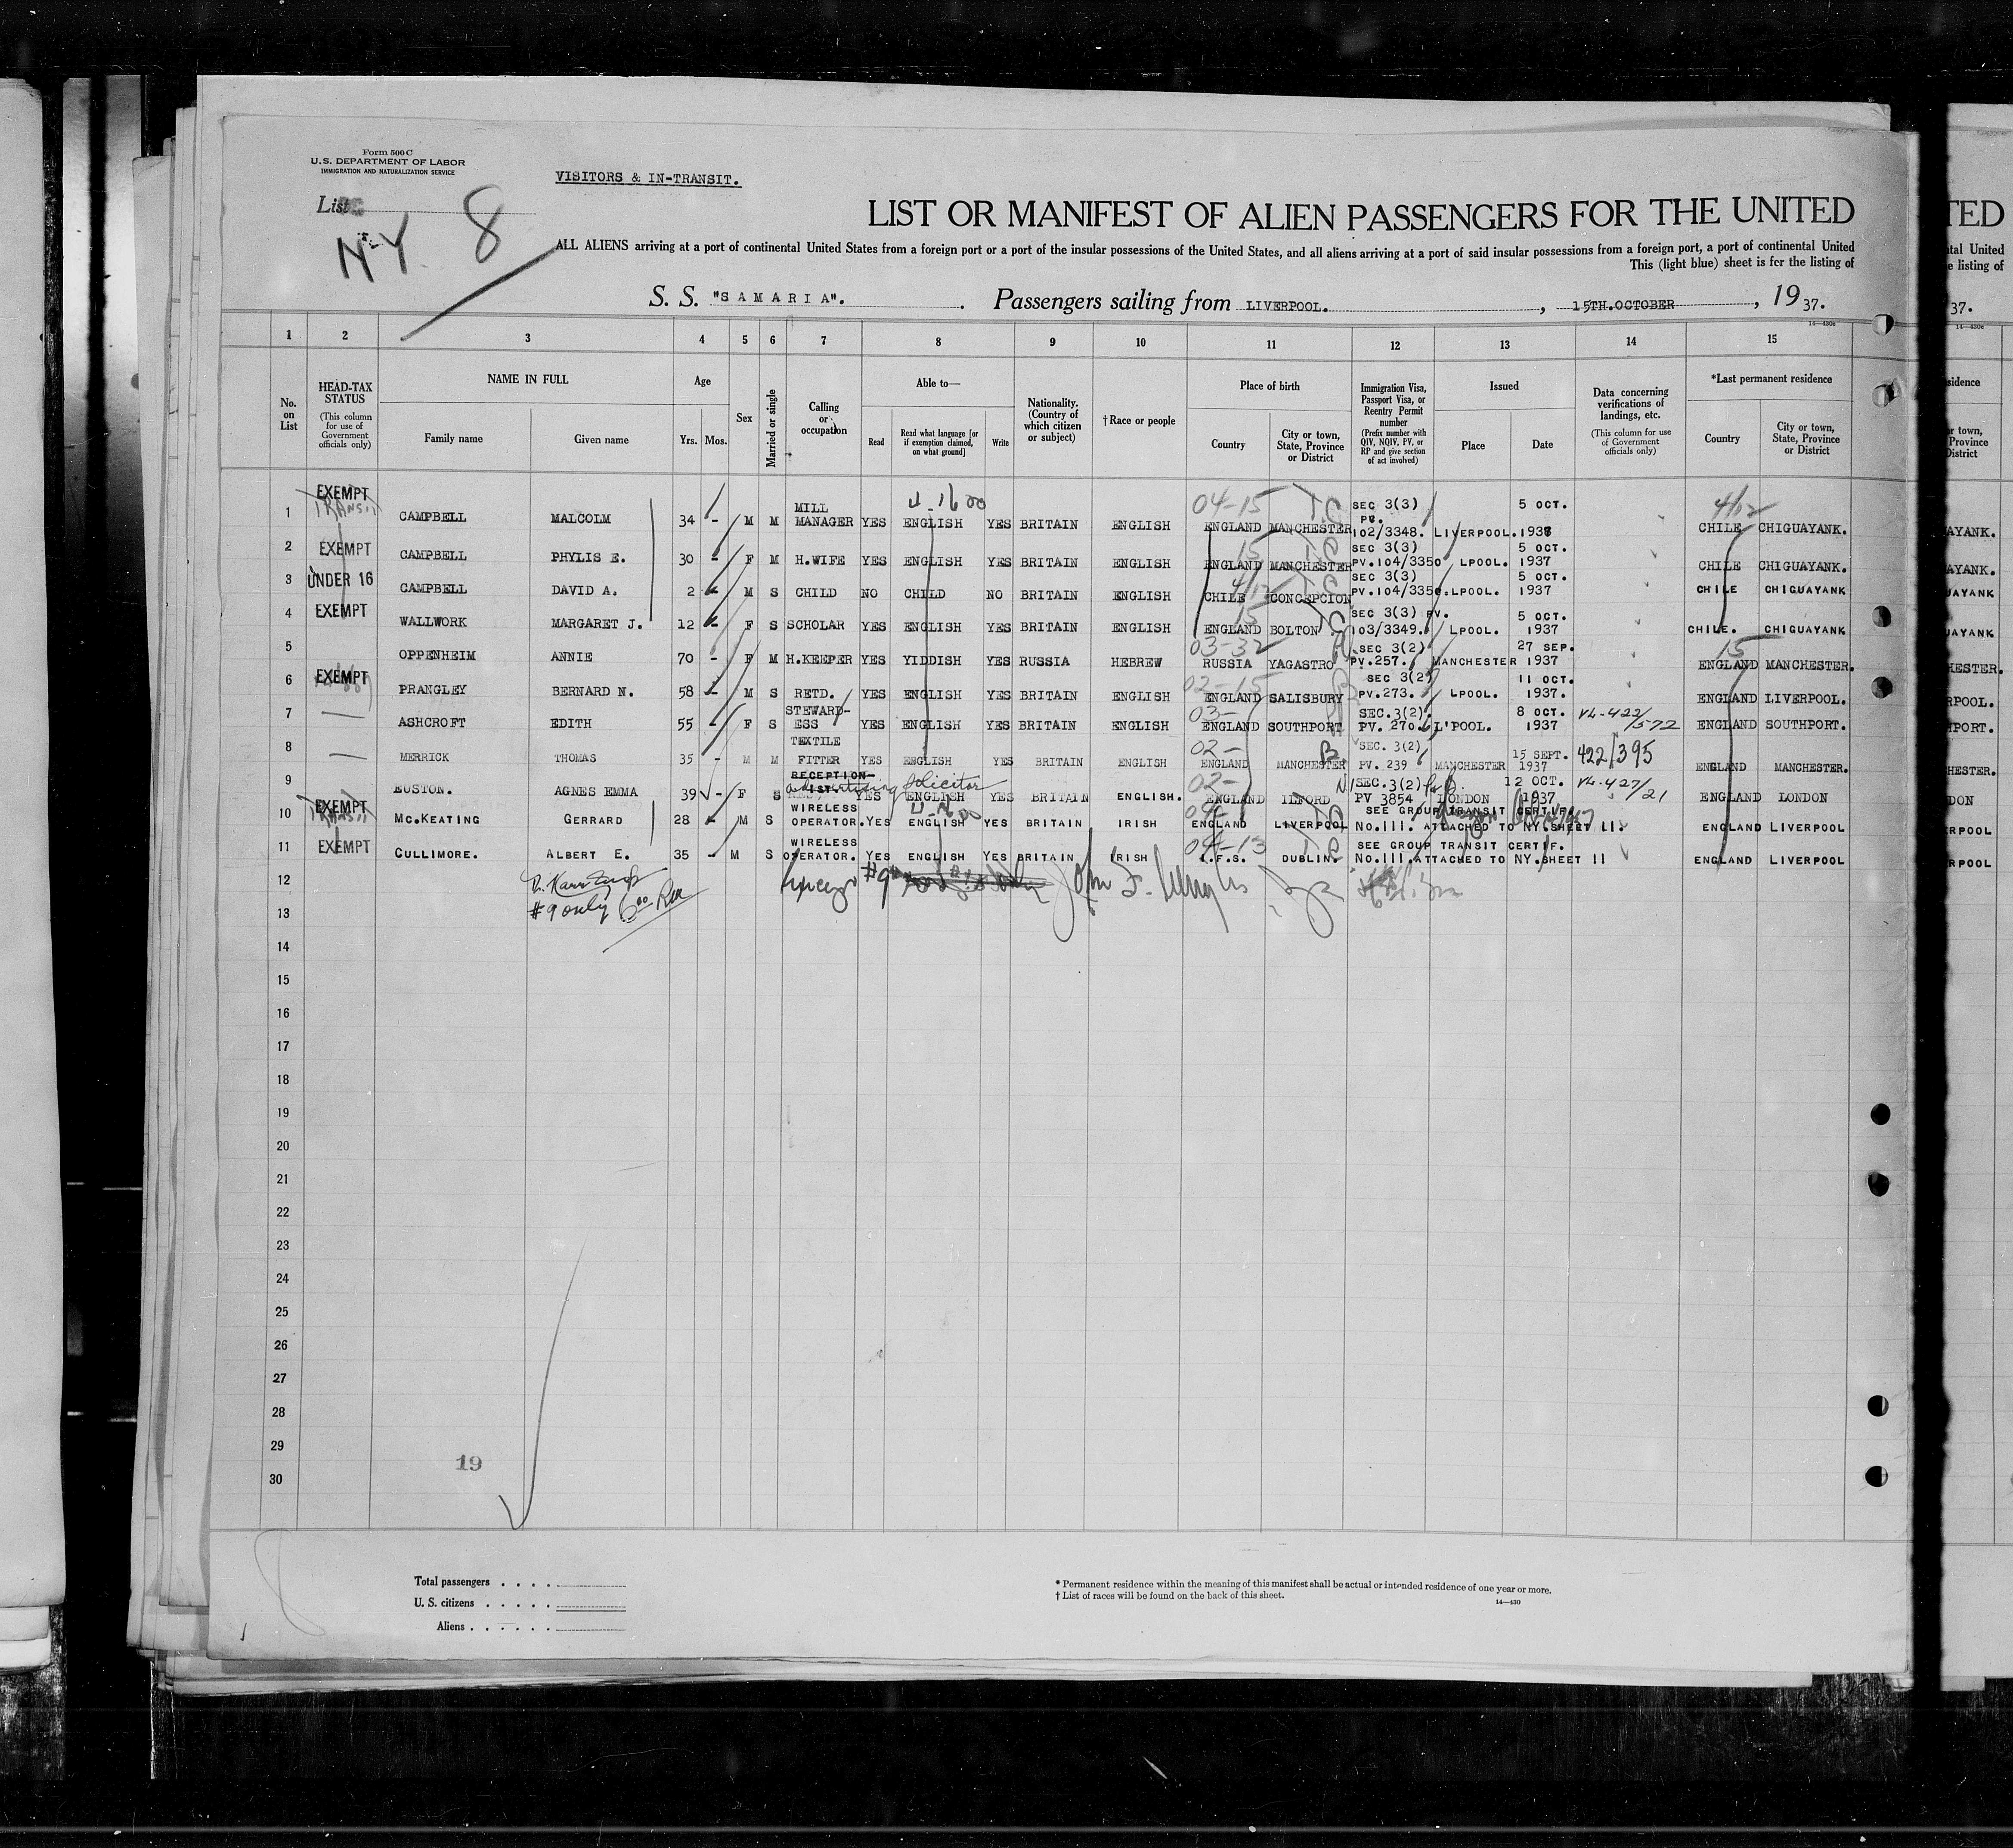 Form 500 C
U.S. DEPARTMENT OF LABOR
IMMIGRATION AND NATURALIZATION SERVICE
VISITORS & IN-TRANSIT.
List
N.Y. 8
LIST OR MANIFEST OF ALIEN PASSENGERS FOR THE UNITED
ALL ALIENS arriving at a port of continental United States from a foreign port or a port of the insular possessions of the United States, and all aliens arriving at a port of said insular possessions from a foreign port, a port of continental United
This (light blue) sheet is for the listing of
S. S. "SAMARIA". Passengers sailing from LIVERPOOL. , 15TH.OCTOBER , 19 37.
14—430c
1 2 3 4 5 6 7 8 9 10 11 12 13 14 15
No. on List
HEAD-TAX STATUS (This column for use of Government officials only)
NAME IN FULL
Family name Given name
Age Yrs. Mos.
Sex
Married or single
Calling or occupation
Able to—
Read Read what language [or if exemption claimed, on what ground] Write
Nationality. (Country of which citizen or subject)
† Race or people
Place of birth
Country City or town, State, Province or District
Immigration Visa, Passport Visa, or Reentry Permit number (Prefix number with QIV, NQIV, PV, or RP and give section of act involved)
Issued
Place Date
Data concerning verifications of landings, etc. (This column for use of Government officials only)
*Last permanent residence
Country City or town, State, Province or District
1 EXEMPT TRANSIT CAMPBELL MALCOLM 34 - M M MILL MANAGER YES ENGLISH YES BRITAIN ENGLISH 04-15 ENGLAND MANCHESTER SEC 3(3) PV. 102/3348. LIVERPOOL. 5 OCT. 1937 4/12 CHILE CHIGUAYANK.
2 EXEMPT CAMPBELL PHYLIS E. 30 - F M H.WIFE YES ENGLISH YES BRITAIN ENGLISH 15 ENGLAND MANCHESTER SEC 3(3) PV.104/3350 LPOOL. 5 OCT. 1937 CHILE CHIGUAYANK.
3 UNDER 16 CAMPBELL DAVID A. 2 - M S CHILD NO CHILD NO BRITAIN ENGLISH 4/12 CHILE CONCEPCION SEC 3(3) PV.104/3350.LPOOL. 5 OCT. 1937 CHILE CHIGUAYANK
4 EXEMPT WALLWORK MARGARET J. 12 - F S SCHOLAR YES ENGLISH YES BRITAIN ENGLISH 15 ENGLAND BOLTON SEC 3(3) PV. 103/3349. LPOOL. 5 OCT. 1937 CHILE. CHIGUAYANK
5 OPPENHEIM ANNIE 70 - F M H.KEEPER YES YIDDISH YES RUSSIA HEBREW 03-32 RUSSIA YAGASTRO SEC 3(2) PV.257. MANCHESTER 27 SEP. 1937 15 ENGLAND MANCHESTER.
6 EXEMPT PRANGLEY BERNARD N. 58 - M S RETD. YES ENGLISH YES BRITAIN ENGLISH 02-15 ENGLAND SALISBURY SEC 3(2) PV.273. LPOOL. 11 OCT. 1937. ENGLAND LIVERPOOL.
7 — ASHCROFT EDITH 55 - F S STEWARD-ESS YES ENGLISH YES BRITAIN ENGLISH 03- ENGLAND SOUTHPORT SEC.3(2). PV. 270. L'POOL. 8 OCT. 1937 VL-422/572 ENGLAND SOUTHPORT.
8 — MERRICK THOMAS 35 - M M TEXTILE FITTER YES ENGLISH YES BRITAIN ENGLISH 02- ENGLAND MANCHESTER SEC. 3(2) PV. 239 MANCHESTER 15 SEPT. 1937 422/395 ENGLAND MANCHESTER.
9 EUSTON. AGNES EMMA 39 - F S RECEPTION- IST. advertising solicitor YES ENGLISH YES BRITAIN ENGLISH. 02- ENGLAND ILFORD SEC.3(2) PV 3854 LONDON 12 OCT. 1937 VL-427/21 ENGLAND LONDON
10 EXEMPT TRANSIT MC.KEATING GERRARD 28 - M S WIRELESS OPERATOR. YES ENGLISH YES BRITAIN IRISH ENGLAND LIVERPOOL SEE GROUP TRANSIT CERTIF. NO.111. ATTACHED TO NY.SHEET 11. ENGLAND LIVERPOOL
11 EXEMPT CULLIMORE. ALBERT E. 35 - M S WIRELESS OPERATOR. YES ENGLISH YES BRITAIN IRISH 04-13 I.F.S. DUBLIN. SEE GROUP TRANSIT CERTIF. NO.111.ATTACHED TO NY.SHEET 11 ENGLAND LIVERPOOL
12 #9 John F.
13 #9 only
14
15
16
17
18
19
20
21
22
23
24
25
26
27
28
29
30
19
Total passengers . . . .
U. S. citizens . . . . .
Aliens . . . . . .
* Permanent residence within the meaning of this manifest shall be actual or intended residence of one year or more.
† List of races will be found on the back of this sheet.
14—430